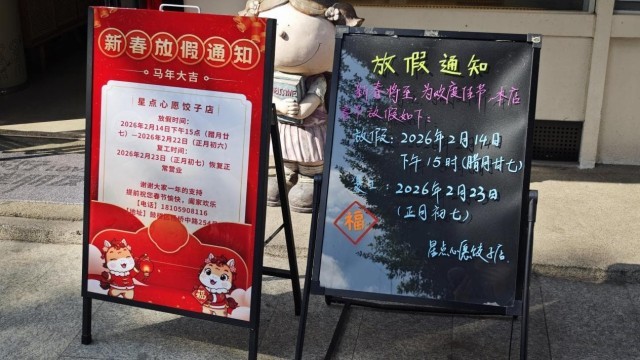 新春放假通知
马年大吉
星点心愿饺子店
放假时间：
2026年2月14日下午15点（腊月廿
七）—2026年2月22日（正月初六）
复工时间：
2026年2月23日（正月初七）恢复正
常营业
谢谢大家一年的支持
提前祝您春节愉快，阖家欢乐
【电话】18105908116
【地址】
侨中路254号
放假通知
新春将至，为欢度佳节，本店
放假如下：
放假：2026年2月14日
下午15时（腊月廿七）
复工：2026年2月23日
（正月初七）
福
星点心愿饺子店